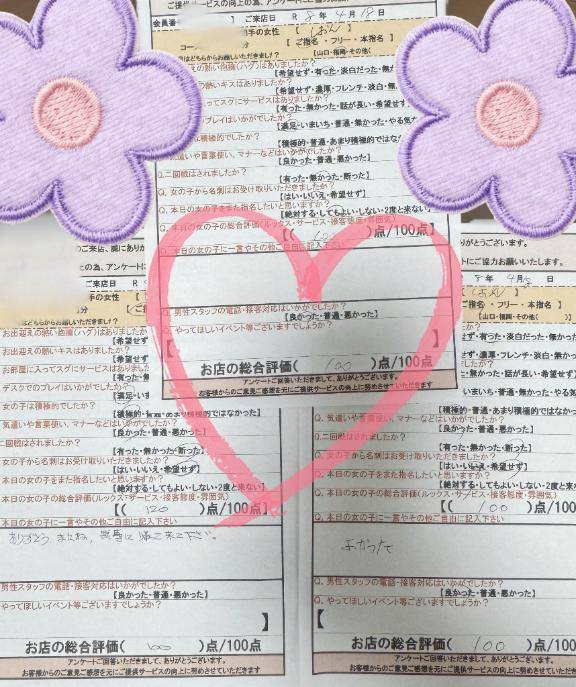 供サービスの向上の為、アンケートに
会員番
ご来店日 R 8年 4月 18日
手の女性 【
【ご指名・フリー・本指名】
【山口・福岡・その他(
【希望せず・有った・淡白だった・無か
【希望せず・濃厚・フレンチ・淡白・無
スってスグにサービスはありましたか?
【有った・無かった・話が長い・希望せず
プレイはいかがでしたか?
【満足・いまいち・普通・無かった・やる気な
極的でしたか?
【積極的・普通・あまり積極的ではな
気遣いや言葉使い、マナーなどはいかがでしたか?
【良かった・普通・悪かった】
Q.二回戦はされましたか?
【有った・無かった・断った】
Q.女の子から名刺はお受け取りいただきましたか?
【はい・いいえ・希望せず】
Q.本日の女の子をまた指名したいと思いますか?
【絶対する・してもよい・しない・2度と来ない】
Q.本日の女の子の総合評価(ルックス・サービス・接客態度・雰囲気)
【( )点/100点】
Q.本日の女の子に一言やその他ご自由に記入下さい
Q.男性スタッフの電話・接客対応はいかがでしたか?
【良かった・普通・悪かった】
Q.やってほしいイベント等ございますでしょうか?
【
】
お店の総合評価( 100 )点/100点
アンケートご回答いただきまして、ありがとうございます。
お客様からのご意見ご感想を元にご提供サービスの向上に努めさせていただきます
ご来店、誠にありが
の為、アンケートに
ご来店日 R
手の女性 【
お出迎えの熱い抱擁(ハグ)はありました
【希望せず
お出迎えの熱いキスはありましたか?
【希望せ
お部屋に入ってスグにサービスはありましたか
【有った・無
デスクでのプレイはいかがでしたか?
【満足・い
女の子は積極的でしたか?
【積極的・普通・あまり積極的ではなかった】
気遣いや言葉使い、マナーなどはいかがでしたか?
【良かった・普通・悪かった】
二回戦はされましたか?
【有った・無かった・断った】
女の子から名刺はお受け取りいただきましたか?
【はい・いいえ・希望せず】
本日の女の子をまた指名したいと思いますか?
【絶対する・してもよい・しない・2度と来ない】
本日の女の子の総合評価(ルックス・サービス・接客態度・雰囲気)
【( 120 )点/100点】
本日の女の子に一言やその他ご自由に記入下さい
男性スタッフの電話・接客対応はいかがでしたか?
【良かった・普通・悪かった】
やってほしいイベント等ございますでしょうか?
】
お店の総合評価( 100 )点/100点
アンケートご回答いただきまして、ありがとうございます。
お客様からのご意見ご感想を元にご提供サービスの向上に努めさせていただきます
がとうございます。
にご協力お願いいたします。
8年 4月
ご指名・フリー・本指名】
【山口・福岡・その他( )】
Q.気遣いや言葉使い、マナーなどはいかがでしたか?
【良かった・普通・悪かった】
Q.二回戦はされましたか?
【有った・無かった・断った】
Q.女の子から名刺はお受け取りいただきましたか?
【はい・いいえ・希望せず】
Q.本日の女の子をまた指名したいと思いますか?
【絶対する・してもよい・しない・2度と来ない】
Q.本日の女の子の総合評価(ルックス・サービス・接客態度・雰囲気)
【( 100 )点/100点】
Q.本日の女の子に一言やその他ご自由に記入下さい
よかった
Q.男性スタッフの電話・接客対応はいかがでしたか?
【良かった・普通・悪かった】
Q.やってほしいイベント等ございますでしょうか?
【
】
お店の総合評価( 100 )点/100点
アンケートご回答いただきまして、ありがとうございます。
お客様からのご意見ご感想を元にご提供サービスの向上に努めさせていただきます